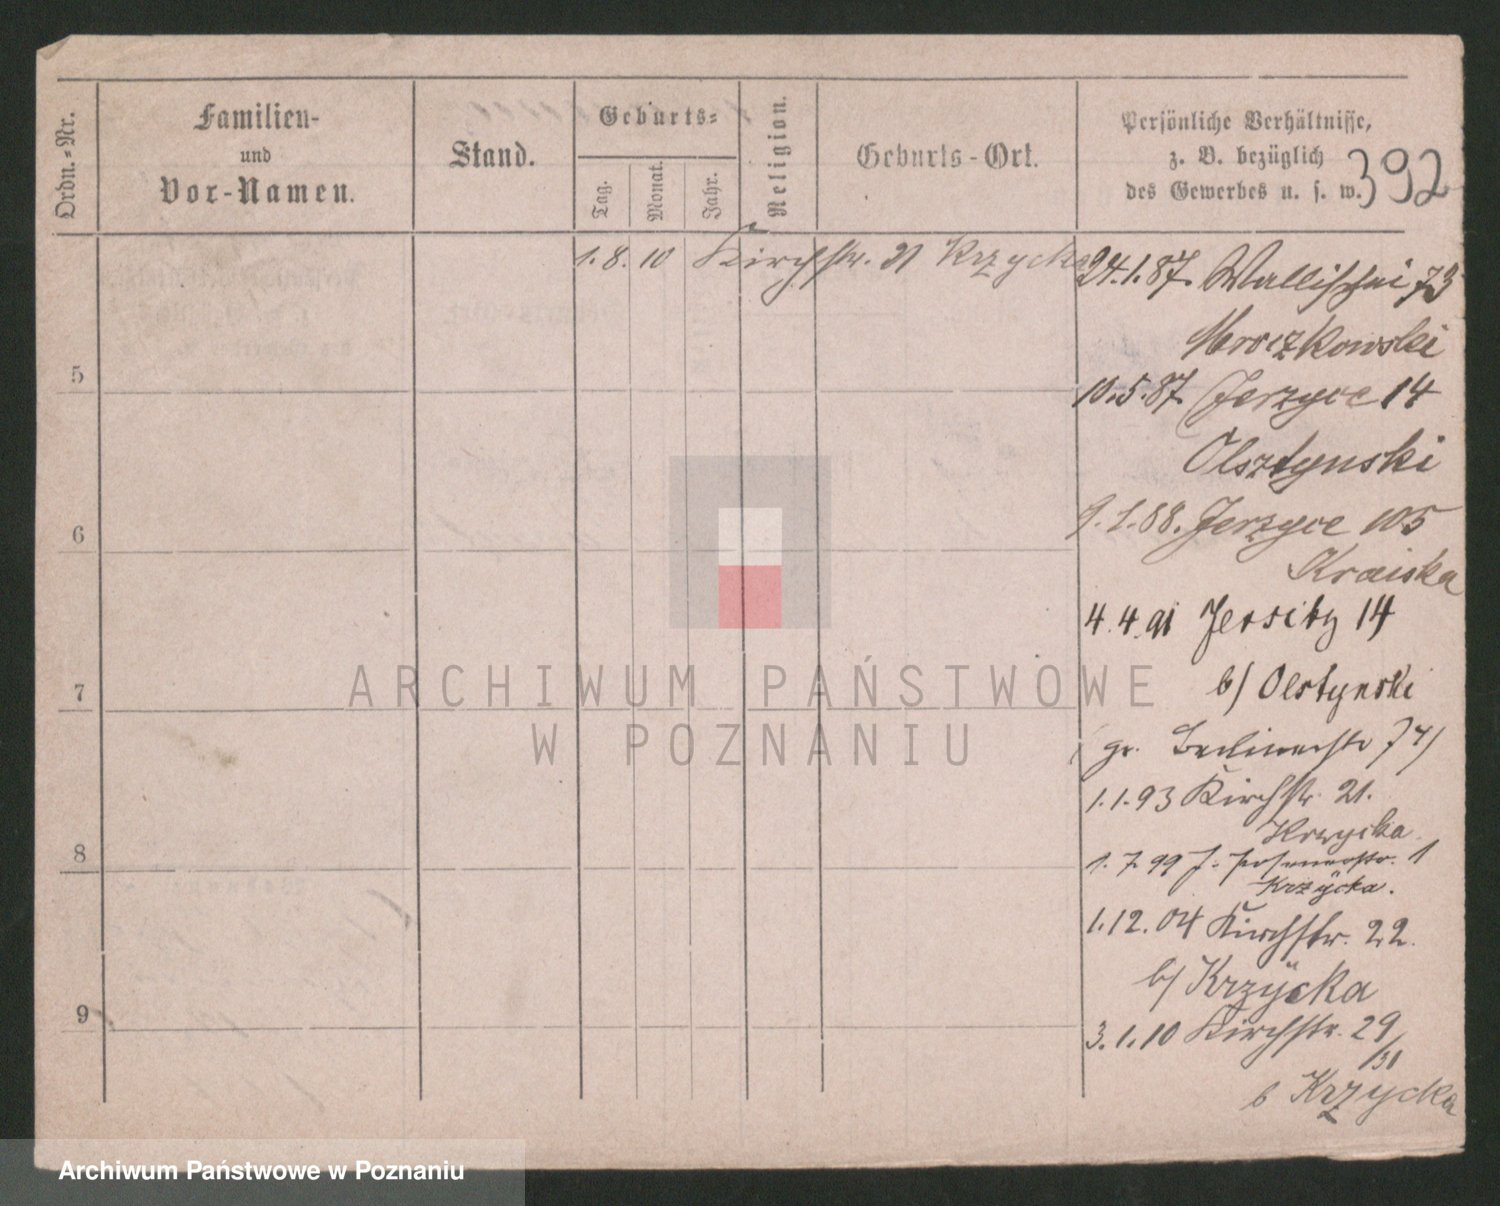 Ordn.-Nr.
Familien-
und
Vor-Namen.
Stand.
Geburts-
Tag.
Monat.
Jahr.
Religion.
Geburts-Ort.
Persönliche Verhältnisse,
z. B. bezüglich
des Gewerbes u. s. w.
392
1. 8. 10 Kirchstr. 21 Krzycka
24.1.87. Wallischei 73
Mroczkowski
5
10.5.87. Jerzyce 14
Olsztynski
6
9.1.88. Jerzyce 105
Kraiska
4.4.91 Jersitz 14
7
b/ Olstynski
gr. Berlinerstr 74)
1.1.93 Kirchstr. 21.
Krzycka
8
1.7.99 J. Posenerstr. 1
Krzycka.
1.12.04 Kirchstr. 22.
b/ Krzycka
9
3.1.10 Kirchstr. 29
/30
b Krzycka
ARCHIWUM PAŃSTWOWE
W POZNANIU
Archiwum Państwowe w Poznaniu